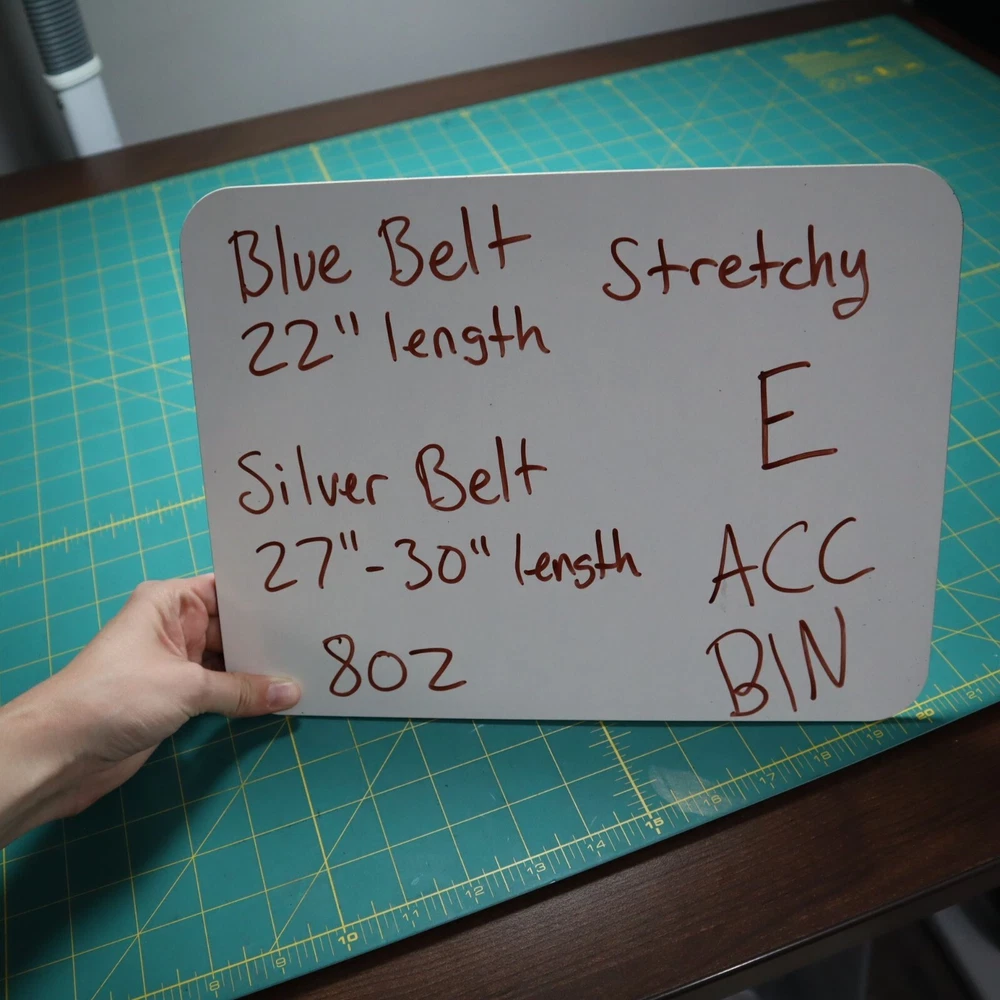 Blue Belt
22" length
Silver Belt
27"-30" length
8oz
Stretchy
E
ACC
BIN
8
9
10
11
12
13
14
15
16
17
18
19
20
21